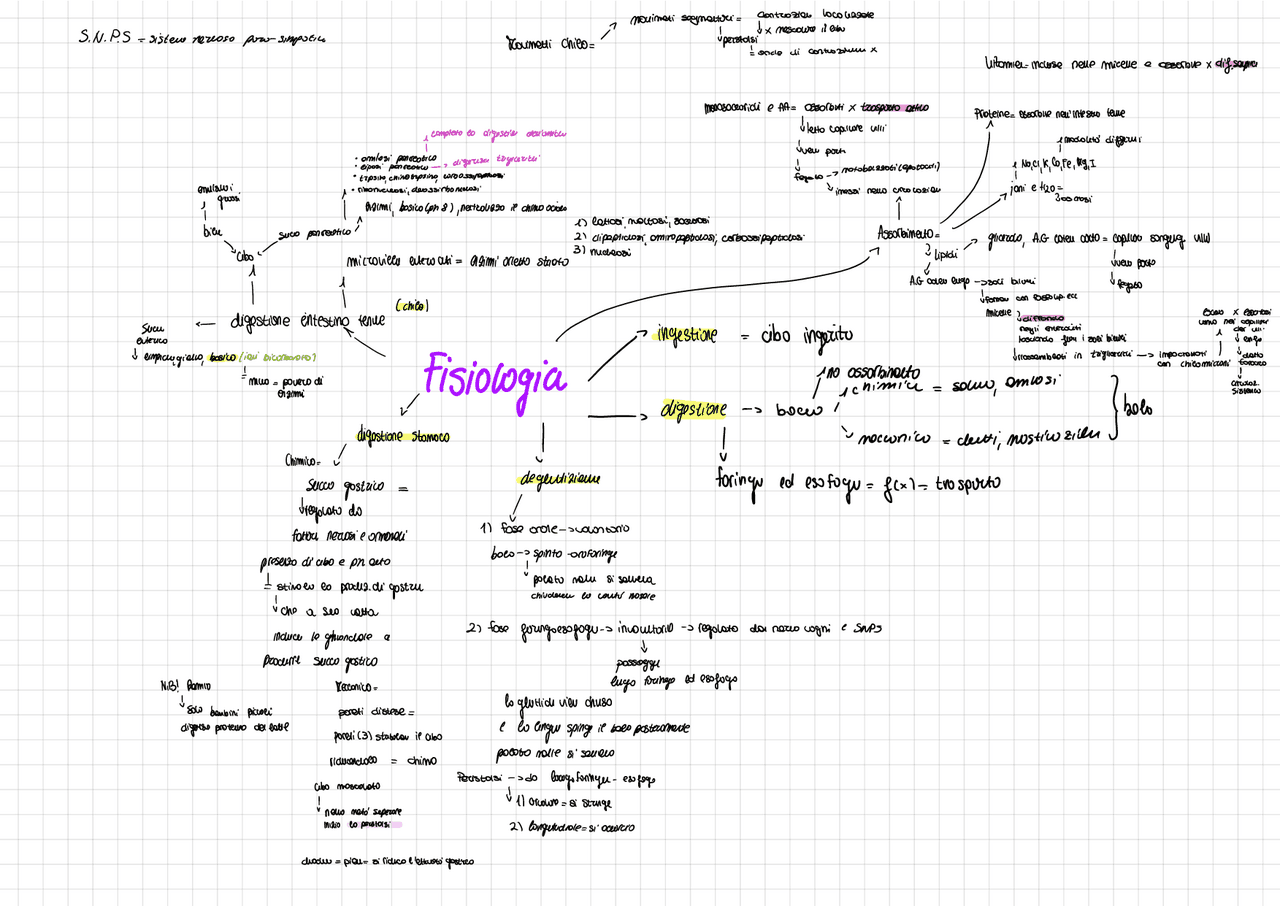 S.N.P.S = sistema nervoso para-simpatico
Movimenti chilo =
movimenti segmentari = contrazioni localizzate
x mescolare il cibo
peristalsi
= onde di contrazioni x
Vitamine = incluse nelle micelle e assorbite x dif. semplice
monosaccaridi e AA = assorbiti x trasporto attivo
letto capillare villi
vena porta
fegato → metabolizzati (epatociti)
immessi nella circolazione
Proteine = assorbite nell'intestino tenue
modalità differenti
Na, Cl, K, Co, Fe, Mg, I
ioni e H2O =
osmosi
Assorbimento =
lipidi
glicerolo, A.G catena corta = capillari sanguig villi
vena porta
fegato
A.G catena lunga → sali biliari
micelle
diffondono
negli enterociti
lasciando fuori i sali biliari
riassemblati in trigliceridi → impacchettati
con chilomicroni
dei villi
dotto
toracico
circolaz.
sistemica
completa la digestione
• amilasi pancreatica
• lipasi pancreatica → digerisce trigliceridi
• tripsina, chimotripsina, carbossipeptidasi
• ribonucleasi, deossiribonucleasi
enzimi, basico (ph 8), neutralizza il chimo acido
emulsiona i
grassi
bile
succo pancreatico
cibo
1) lattasi, maltasi, saccarasi
2) dipeptidasi, aminopeptidasi, carbossipeptidasi
3) nucleasi
microvilli enterociti = enzimi orletto striato
(chilo)
digestione intestino tenue
Succo
enterico
limpido, giallo, basico (ioni bicarbonato)
muco = povero di
enzimi
Fisiologia
ingestione = cibo ingerito
digestione → bocca
no assorbimento
chimica = saliva, amilasi
meccanica = denti, masticazione
bolo
faringe ed esofago = f(x) = trasporto
digestione stomaco
Chimica =
succo gastrico =
regolato da
fattori nervosi e ormonali
presenza di cibo e ph alto
= stimola la produz. di gastrina
che a sua volta
induce le ghiandole a
produrre succo gastrico
N.B! Rennina
solo bambini piccoli
digerisce proteine del latte
Meccanica =
pareti distese =
pareti (3) strato
riducendolo = chimo
cibo mescolato
nella metà superiore
inizia la peristalsi
si riduce l'attività gastrica
deglutizione
1) fase orale → volontaria
bolo → spinto orofaringe
palato molle si solleva
chiudendo le cavità nasale
2) fase faringoesofagea → involontaria → regolato dai nervi cranici e SNPS
passaggio
lungo faringe ed esofago
la glottide viene chiusa
e la lingua spinge il bolo posteriormente
palato molle si solleva
Peristalsi → da laringofaringe - esofago
1) circolare = si stringe
2) longitudinale = si accorcia